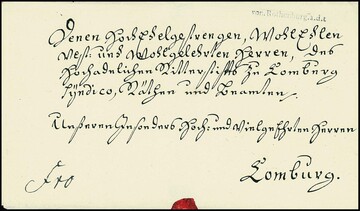 von Rothenburg a.d.t
Denen HochEdelgestrengen, WohlEdlen
Vest- und Wohlgelehrten Herren, des
Hochadelichen Ritterstiffts zu Comburg
Syndico, Räthen und Beamten.
Unseren Insonders Hoch- und Vielgeehrten Herren
Fro
Comburg.